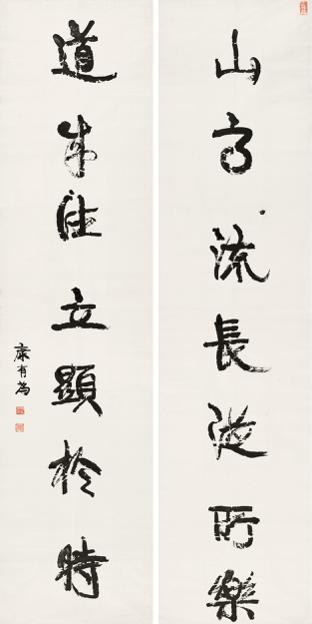 山高流長從所樂
道成德立顯於時
康有為